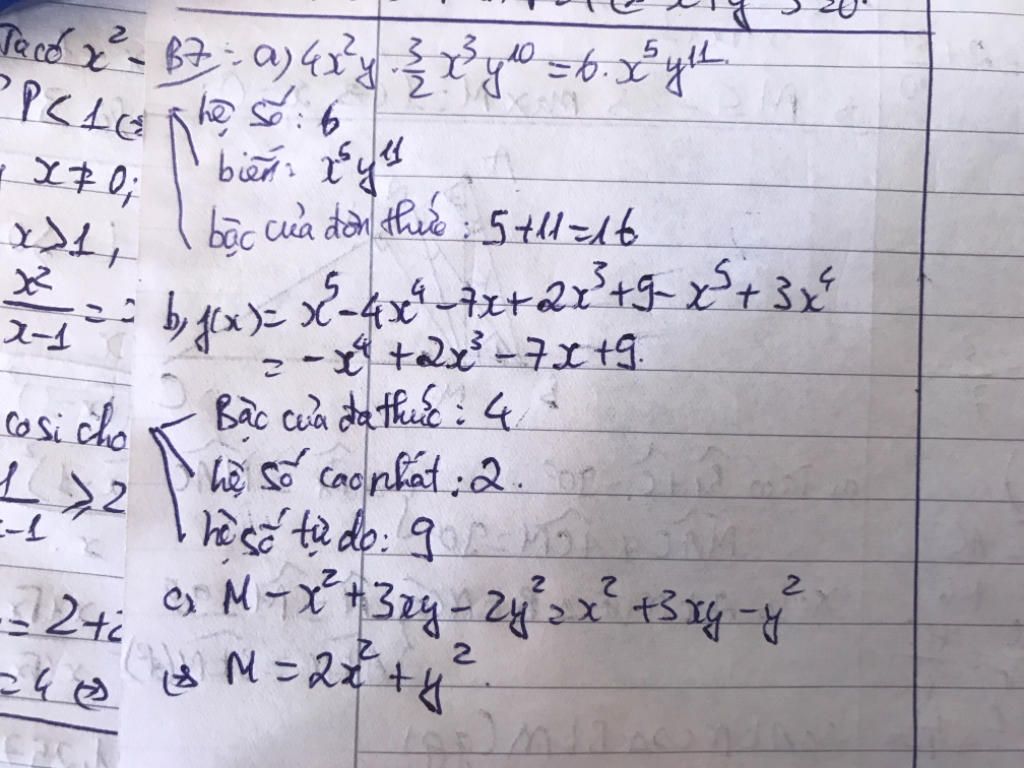 Ta có x² -
P < 1 (=>
x ≠ 0;
x > 1,
x²/x-1 = -
cosi cho
1/x-1 ≥ 2
= 2 + 2
= 4 (=>
B7: a) 4x²y . 3/2 x³y¹⁰ = 6 . x⁵y¹¹.
hệ số: 6
biến: x⁵y¹¹
bậc của đơn thức: 5+11=16
b, f(x) = x⁵ - 4x⁴ - 7x + 2x³ + 9 - x⁵ + 3x⁴
= -x⁴ + 2x³ - 7x + 9.
Bậc của đa thức: 4
hệ số cao nhất: 2.
hệ số tự do: 9
c, M - x² + 3xy - 2y² = x² + 3xy - y²
(=> M = 2x² + y².